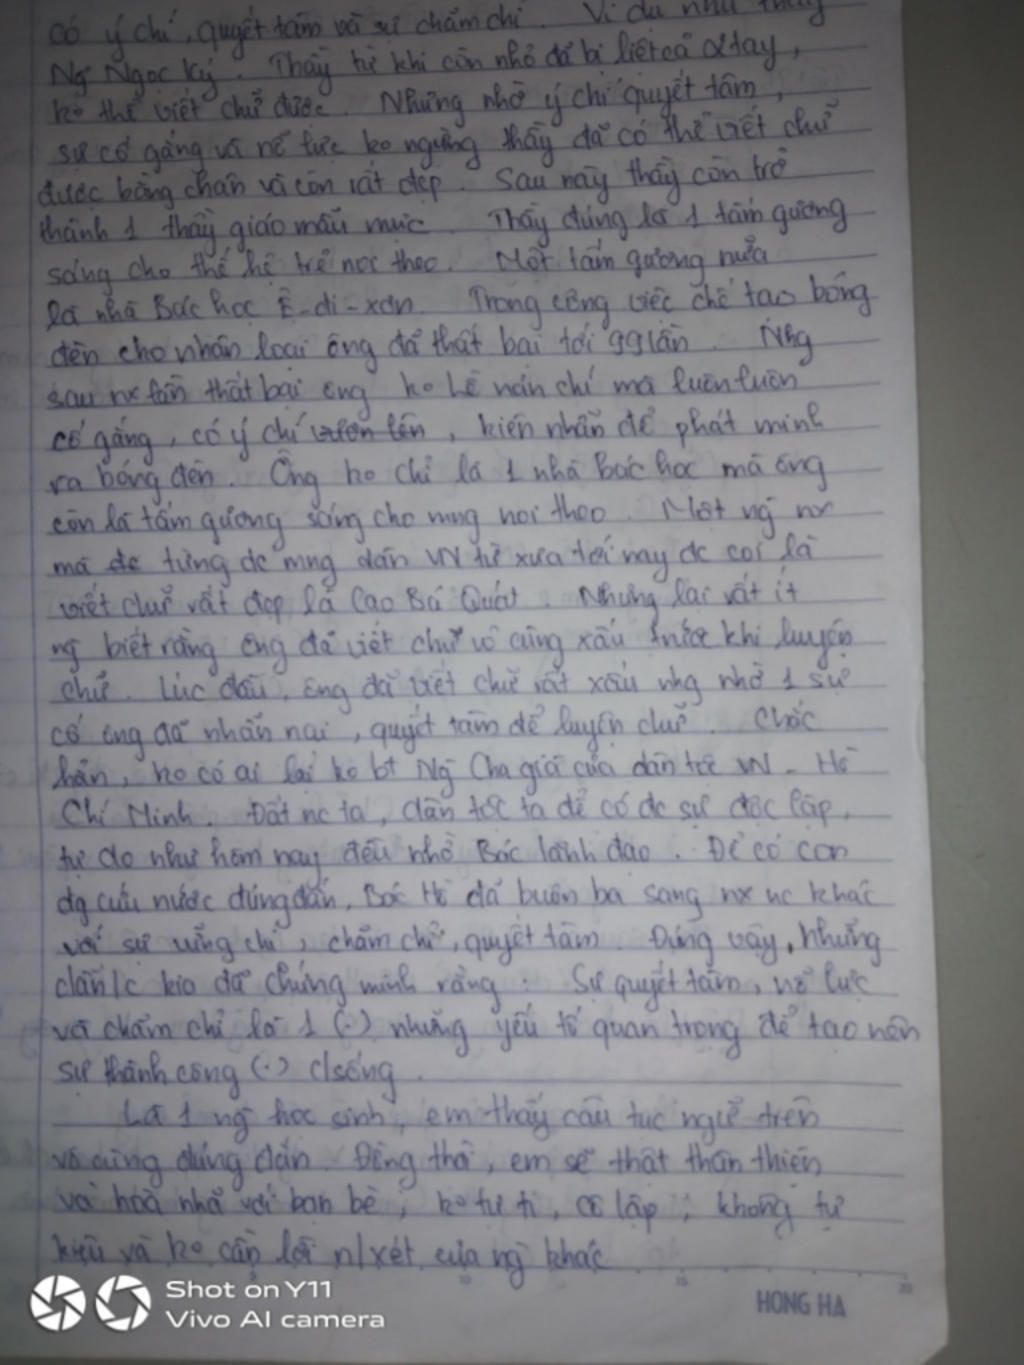 có ý chí, quyết tâm và sự chăm chỉ. Ví dụ như thầy
Ng Ngọc Ký. Thầy từ khi còn nhỏ đã bị liệt cả 2 tay,
ko thể viết chữ được. Nhưng nhờ ý chí quyết tâm,
sự cố gắng và nỗ lực ko ngừng thầy đã có thể viết chữ
được bằng chân và còn rất đẹp. Sau này thầy còn trở
thành 1 thầy giáo mẫu mực. Thầy đúng là 1 tấm gương
sáng cho thế hệ trẻ noi theo. Một tấm gương nữa
là nhà Bác học Ê-di-xơn. Trong công việc chế tạo bóng
đèn cho nhân loại ông đã thất bại tới 99 lần. Nhg
sau nx lần thất bại ông ko hề nản chí mà luôn luôn
cố gắng, có ý chí vươn lên, kiên nhẫn để phát minh
ra bóng đèn. Ông ko chỉ là 1 nhà Bác học mà ông
còn là tấm gương sáng cho mng noi theo. Một ng nx
mà đc từng đc mng dân VN từ xưa tới nay đc coi là
viết chữ rất đẹp là Cao Bá Quát. Nhưng lại rất ít
ng biết rằng ông đã viết chữ vô cùng xấu trước khi luyện
chữ. Lúc đầu, ông đã viết chữ rất xấu nhg nhờ 1 sự
cố ông đã nhẫn nại, quyết tâm để luyện chữ. Chắc
hẳn, ko có ai lại ko bt Ng Cha già của dân tộc VN - Hồ
Chí Minh. Đất nc ta, dân tộc ta để có đc sự độc lập,
tự do như hôm nay đều nhờ Bác lãnh đạo. Để có con
đg cứu nước đúng đắn, Bác Hồ đã buôn ba sang nx nc khác
với sự vững chí, chăm chỉ, quyết tâm. Đúng vậy, những
dẫn/c kia đã chứng minh rằng: Sự quyết tâm, nỗ lực
và chăm chỉ là 1 (.) những yếu tố quan trọng để tạo nên
sự thành công (.) c/sống.
Là 1 ng học sinh, em thấy câu tục ngữ trên
vô cùng đúng đắn. Đồng thời, em sẽ thật thân thiện
và hoà nhã với bạn bè, ko tự ti, cô lập, không tự
kiêu và ko cần lời n/xét của ng khác
HONG HA
Shot on Y11
Vivo AI camera